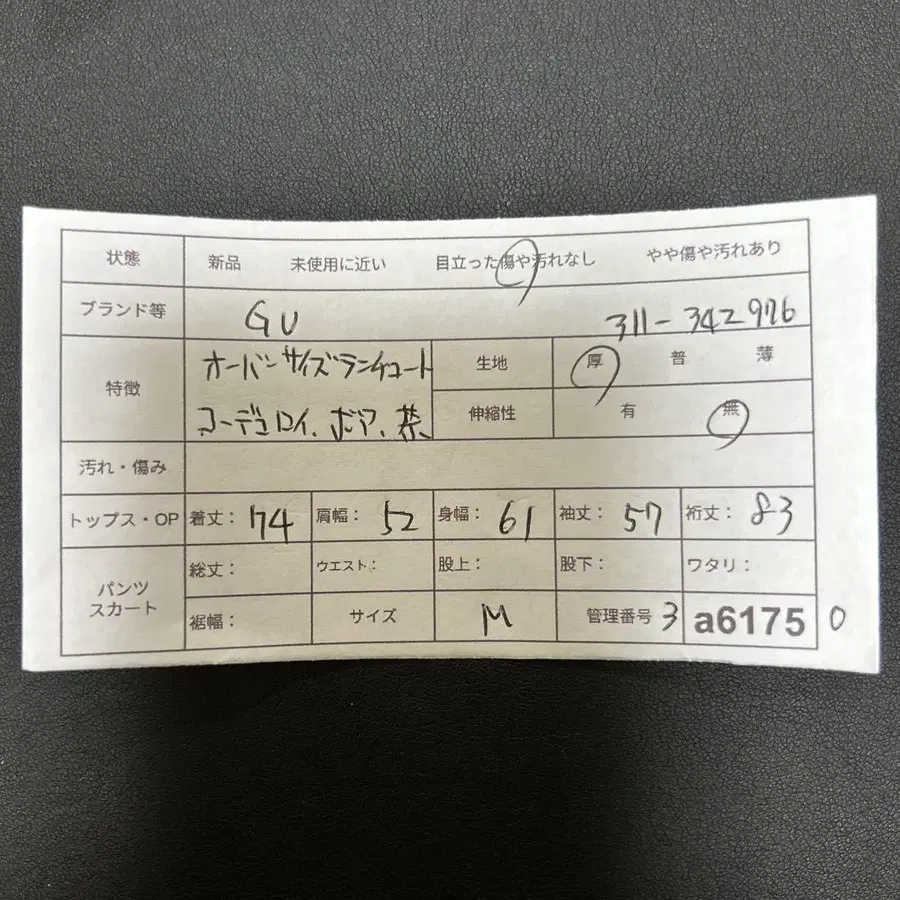 状態 新品 未使用に近い 目立った傷や汚れなし やや傷や汚れあり
ブランド等 GU 311-342976
特徴 オーバーサイズランチコート 生地 厚 普 薄
コーデュロイ、ボア、茶 伸縮性 有 無
汚れ・傷み
トップス・OP 着丈： 74 肩幅： 52 身幅： 61 袖丈： 57 裄丈： 83
パンツ スカート 総丈： ウエスト： 股上： 股下： ワタリ：
裾幅： サイズ M 管理番号 3 a6175 0